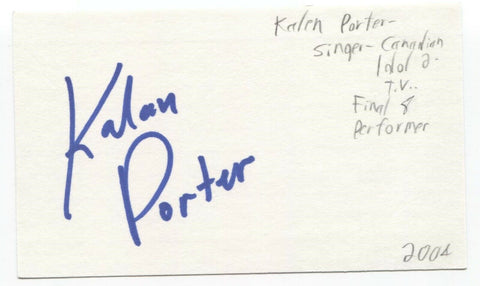 Kalan
Porter
Kalen Porter-
Singer- Canadian
Idol 2-
T.V..
Final 8
Performer
2004